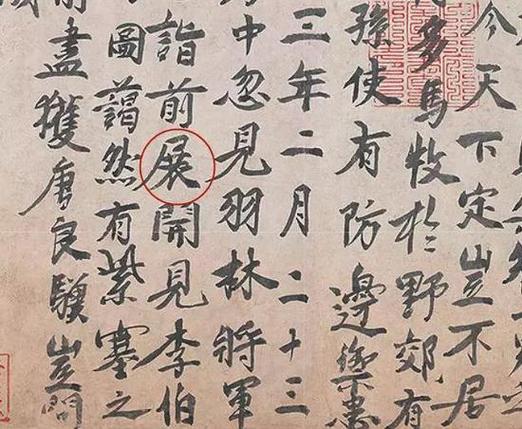 今天下定豈不居
多馬牧於野郊有
孫使有防邊禦
三年二月二十三
中忽見羽林將軍
詣前展開見李伯
圖藹然有紫塞之
盡獲唐良驥豈問